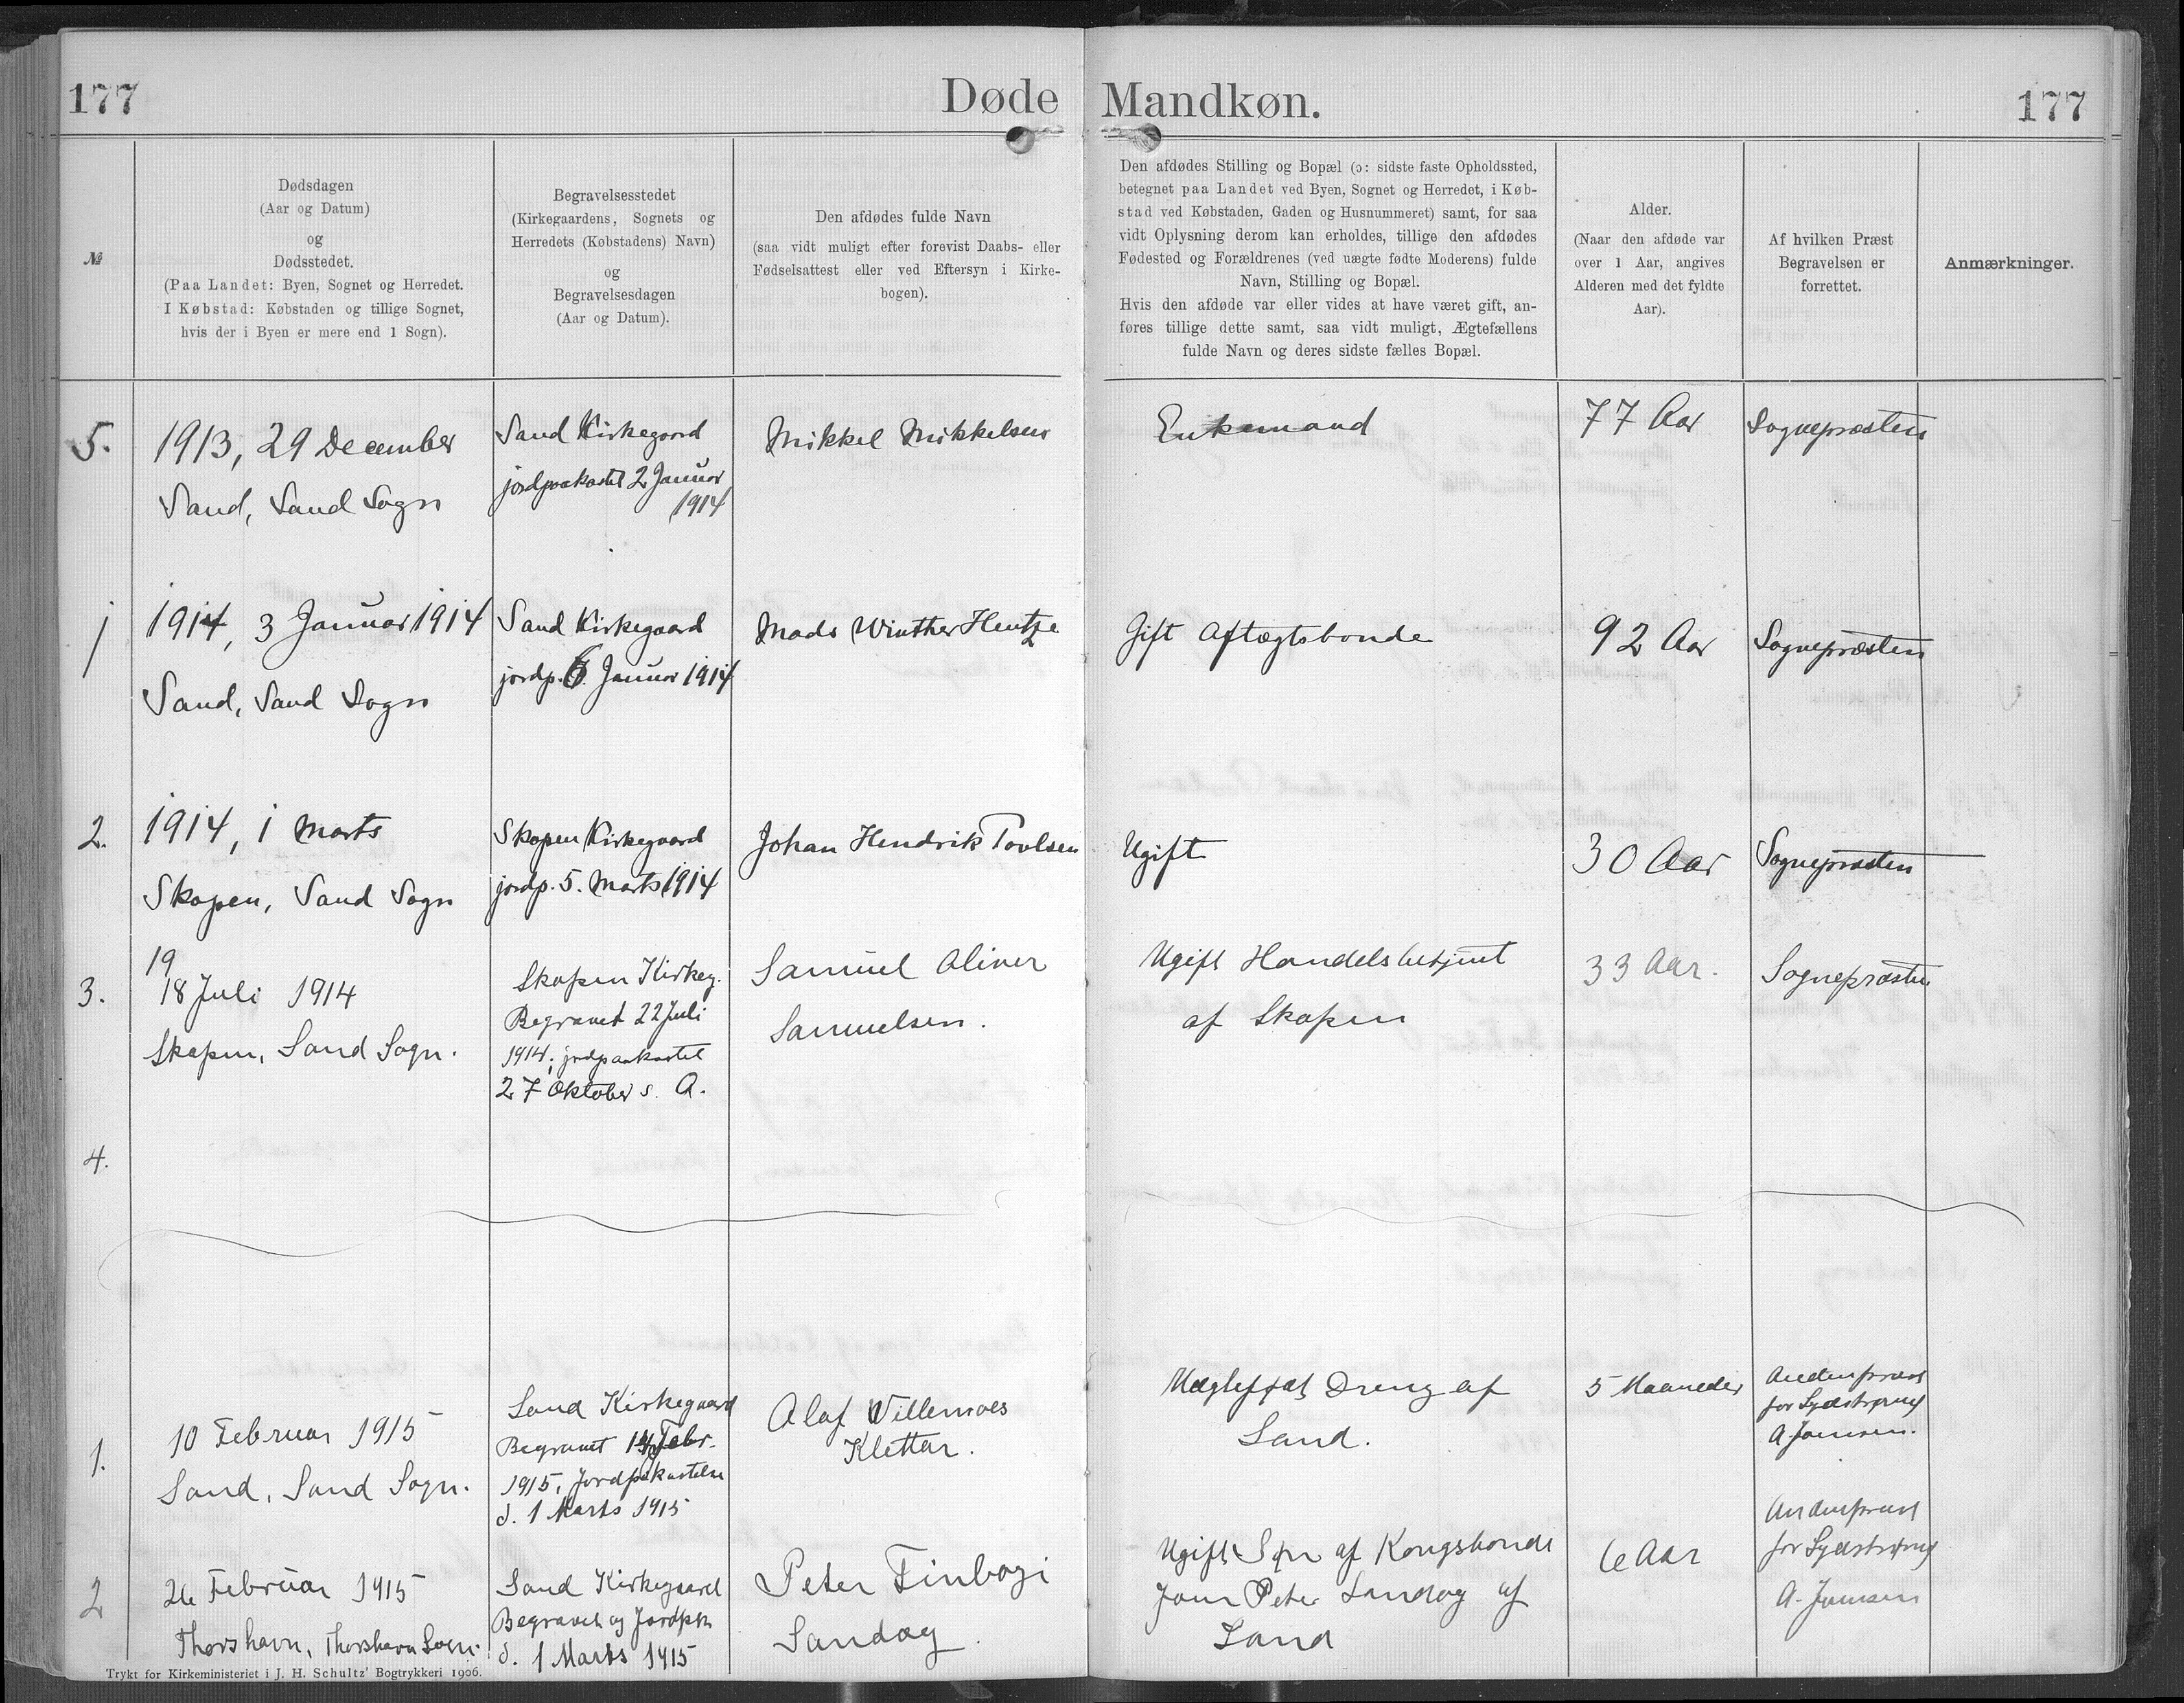 177
Døde
Mandkøn.
177
№
Dødsdagen
(Aar og Datum)
og
Dødsstedet.
(Paa Landet: Byen, Sognet og Herredet.
I Købstad: Købstaden og tillige Sognet,
hvis der i Byen er mere end 1 Sogn).
Begravelsesstedet
(Kirkegaardens, Sognets og
Herredets (Købstadens) Navn)
og
Begravelsesdagen
(Aar og Datum).
Den afdødes fulde Navn
(saa vidt muligt efter forevist Daabs- eller
Fødselsattest eller ved Eftersyn i Kirke-
bogen).
Den afdødes Stilling og Bopæl (ɔ: sidste faste Opholdssted,
betegnet paa Landet ved Byen, Sognet og Herredet, i Køb-
stad ved Købstaden, Gaden og Husnummeret) samt, for saa
vidt Oplysning derom kan erholdes, tillige den afdødes
Fødested og Forældrenes (ved uægte fødte Moderens) fulde
Navn, Stilling og Bopæl.
Hvis den afdøde var eller vides at have været gift, an-
føres tillige dette samt, saa vidt muligt, Ægtefællens
fulde Navn og deres sidste fælles Bopæl.
Alder.
(Naar den afdøde var
over 1 Aar, angives
Alderen med det fyldte
Aar).
Af hvilken Præst
Begravelsen er
forrettet.
Anmærkninger.
5.
1913, 29 December
Sand, Sand Sogn
Sand Kirkegaard
jordpaakastet 2 Januar
1914
Mikkel Mikkelsen
Enkemand
77 Aar
Sognepræsten
1
1914, 3 Januar 1914
Sand, Sand Sogn
Sand Kirkegaard
jordp. 6. Januar 1914
Mads Winther Hentze
Gift Aftægtsbonde
92 Aar
Sognepræsten
2.
1914, 1 Marts
Skopen, Sand Sogn
Skopen Kirkegaard
jordp. 5. Marts 1914
Johan Hendrik Poulsen
Ugift
30 Aar
Sognepræsten
3.
19
18 Juli 1914
Skopen, Sand Sogn.
Skopen Kirkeg.
Begravet 22 Juli
1914; jordpaakastet
27 Oktober s. A.
Samuel Oliver
Samuelsen.
Ugift Handelsbetjent
af Skopen
33 Aar.
Sognepræsten
4.
1.
10 Februar 1915
Sand, Sand Sogn.
Sand Kirkegaard
Begravet Febr.
1915, Jordpåkastelse
d. 1 Marts 1915
Olaf Willemoes
Klettar.
Uægtefødt Dreng af
Sand.
5 Maaneder
Andenpræst
for Sydstrømø
A. Joensen.
2
26 Februar 1915
Thorshavn, Thorshavn Sogn.
Sand Kirkegaard
Begravet og Jordpk
d. 1 Marts 1915
Peter Finbogi
Sandoy.
Ugift Søn af Kongsbonde
Joen Peter Sandoy af
Sand
6 Aar
Andenpræst
for Sydstrømø
A. Joensen
Trykt for Kirkeministeriet i J. H. Schultz' Bogtrykkeri 1906.